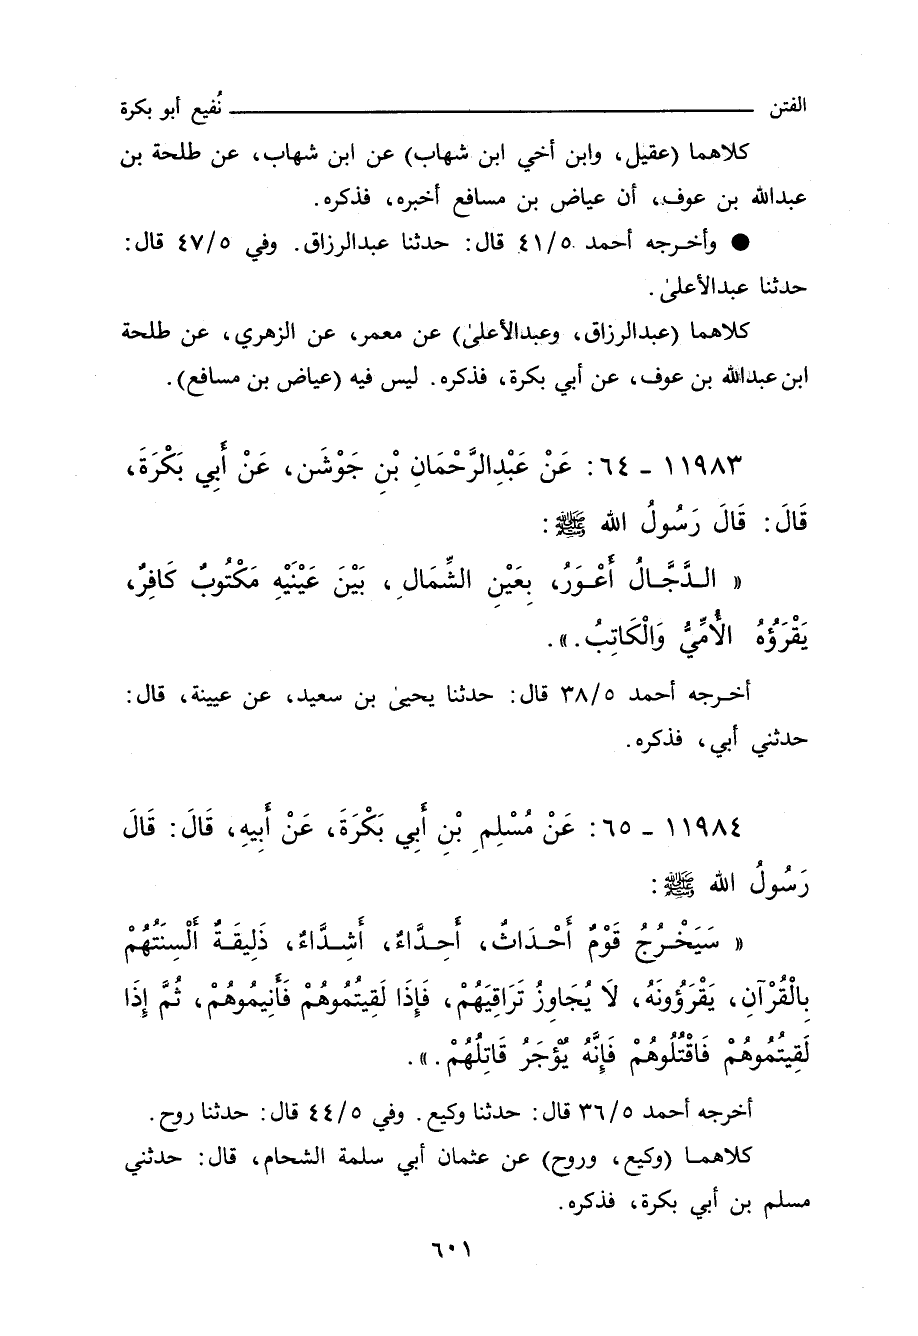 الفتن ــــــــــــــــــــ نُفيع أبو بكرة
كلاهما (عقيل، وابن أخي ابن شهاب) عن ابن شهاب، عن طلحة بن
عبدالله بن عوف، أن عياض بن مسافع أخبره، فذكره.
● وأخرجه أحمد ٤١/٥ قال: حدثنا عبدالرزاق. وفي ٤٧/٥ قال:
حدثنا عبدالأعلىٰ.
كلاهما (عبدالرزاق، وعبدالأعلىٰ) عن معمر، عن الزهري، عن طلحة
ابن عبدالله بن عوف، عن أبي بكرة، فذكره. ليس فيه (عياض بن مسافع).
١١٩٨٣ - ٦٤: عَنْ عَبْدِالرَّحْمَانِ بْنِ جَوْشَن، عَنْ أَبِي بَكْرَةَ،
قَالَ: قَالَ رَسُولُ الله ﷺ:
« الدَّجَّالُ أَعْوَرُ، بِعَيْنِ الشِّمَالِ، بَيْنَ عَيْنَيْهِ مَكْتُوبٌ كَافِرٌ،
يَقْرَؤُهُ الأُمِّيُّ وَالْكَاتِبُ.».
أخرجه أحمد ٣٨/٥ قال: حدثنا يحيىٰ بن سعيد، عن عيينة، قال:
حدثني أبي، فذكره.
١١٩٨٤ - ٦٥: عَنْ مُسْلِمِ بْنِ أَبِي بَكْرَةَ، عَنْ أَبِيهِ، قَالَ: قَالَ
رَسُولُ الله ﷺ:
« سَيَخْرُجُ قَوْمٌ أَحْدَاثٌ، أَحِدَّاءُ، أَشِدَّاءُ، ذَلِيقَةٌ أَلْسِنَتُهُمْ
بِالْقُرْآنِ، يَقْرَؤُونَهُ، لَا يُجَاوِزُ تَرَاقِيَهُمْ، فَإِذَا لَقِيتُمُوهُمْ فَأَنِيمُوهُمْ، ثُمَّ إِذَا
لَقِيتُمُوهُمْ فَاقْتُلُوهُمْ فَإِنَّهُ يُؤْجَرُ قَاتِلُهُمْ.».
أخرجه أحمد ٣٦/٥ قال: حدثنا وكيع. وفي ٤٤/٥ قال: حدثنا روح.
كلاهما (وكيع، وروح) عن عثمان أبي سلمة الشحام، قال: حدثني
مسلم بن أبي بكرة، فذكره.
٦٠١